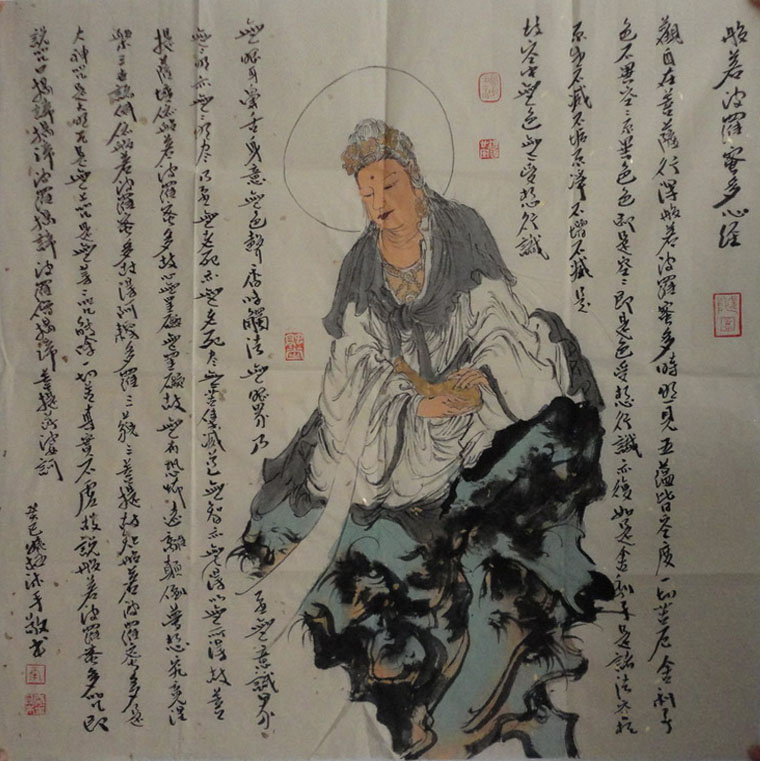 般若波羅蜜多心經
觀自在菩薩行深般若波羅蜜多時照見五蘊皆空度一切苦厄舍利子
色不異空〻不異色色即是空〻即是色受想行識亦復如是舍利子是諸法空相
不生不滅不垢不淨不增不減是
故空中無色無受想行識
無眼耳鼻舌身意無色聲香味觸法無眼界乃至無意識界
無無明亦無無明盡乃至無老死亦無老死盡無苦集滅道無智亦無得以無所得故菩
提薩埵依般若波羅蜜多故心無罣礙無罣礙故無有恐怖遠離顛倒夢想究竟涅
槃三世諸佛依般若波羅蜜多故得阿耨多羅三藐三菩提故知般若波羅蜜多是
大神咒是大明咒是無上咒是無等〻咒能除一切苦真實不虛故說般若波羅蜜多咒即
說咒曰揭諦揭諦波羅揭諦波羅僧揭諦菩提薩婆訶
癸巳沐手敬書